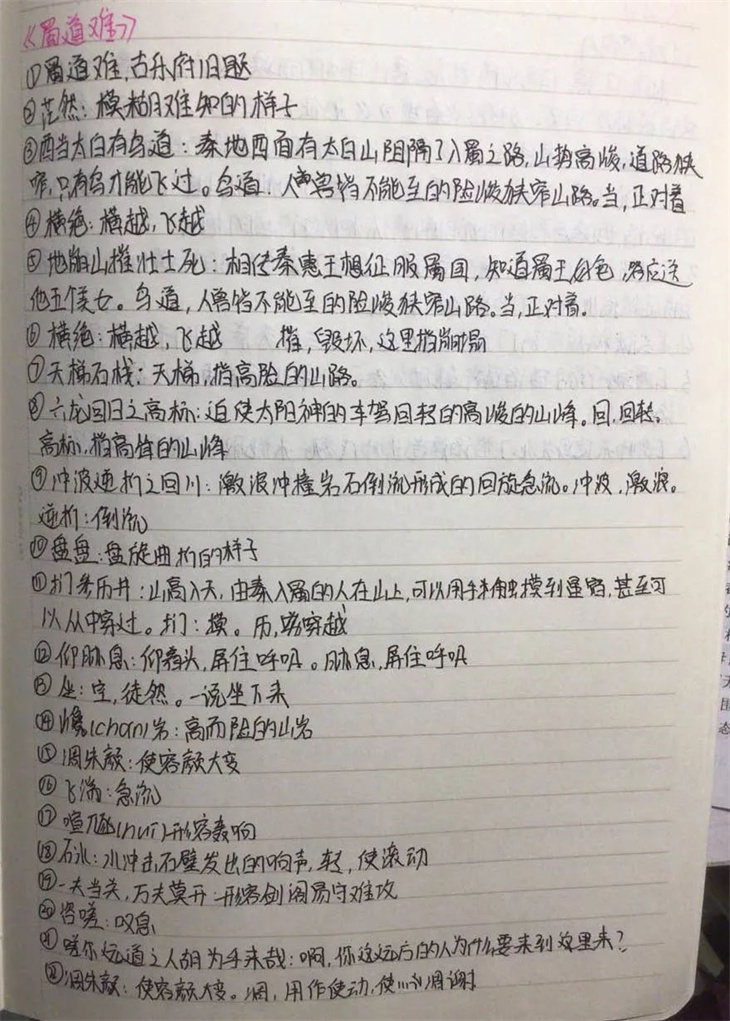 《蜀道难》
①蜀道难,古乐府旧题
②茫然:模糊难知的样子
③西当太白有鸟道:秦地西面有太白山阻隔了入蜀之路,山势高峻,道路狭
窄,只有鸟才能飞过。鸟道:人兽皆不能至的险峻狭窄山路。当,正对着
④横绝:横越,飞越
⑤地崩山摧壮士死:相传秦惠王想征服蜀国,知道蜀王好色,答应送
他五个美女。鸟道,人兽皆不能至的险峻狭窄山路。当,正对着.
⑥横绝:横越,飞越 摧,毁坏,这里指崩塌
⑦天梯石栈:天梯,指高险的山路。
⑧六龙回日之高标:迫使太阳神的车驾回转的高峻的山峰。回,回转。
高标,指高耸的山峰
⑨冲波逆折之回川:激浪冲撞岩石倒流形成的回旋急流。冲波,激浪。
逆折:倒流
⑩盘盘:盘旋曲折的样子
⑪扪参历井:山高入天,由秦入蜀的人在山上,可以用手来触摸到星宿,甚至可
以从中穿过。扪:摸。历,穿越
⑫仰胁息:仰着头,屏住呼吸。胁息,屏住呼吸
⑬坐:空,徒然。一说坐下来
⑭巉(chan)岩:高而险的山岩
⑮凋朱颜:使容颜大变
⑯飞湍:急流
⑰喧豗(huī)形容轰响
⑱砯:水冲击石壁发出的响声,转,使滚动
⑲一夫当关,万夫莫开:形容剑阁易守难攻
⑳咨嗟:叹息
㉑嗟尔远道之人胡为乎来哉:啊,你这远方的人为什么要来到这里来?
㉒凋朱颜:使容颜大变。凋,用作使动,使……凋谢